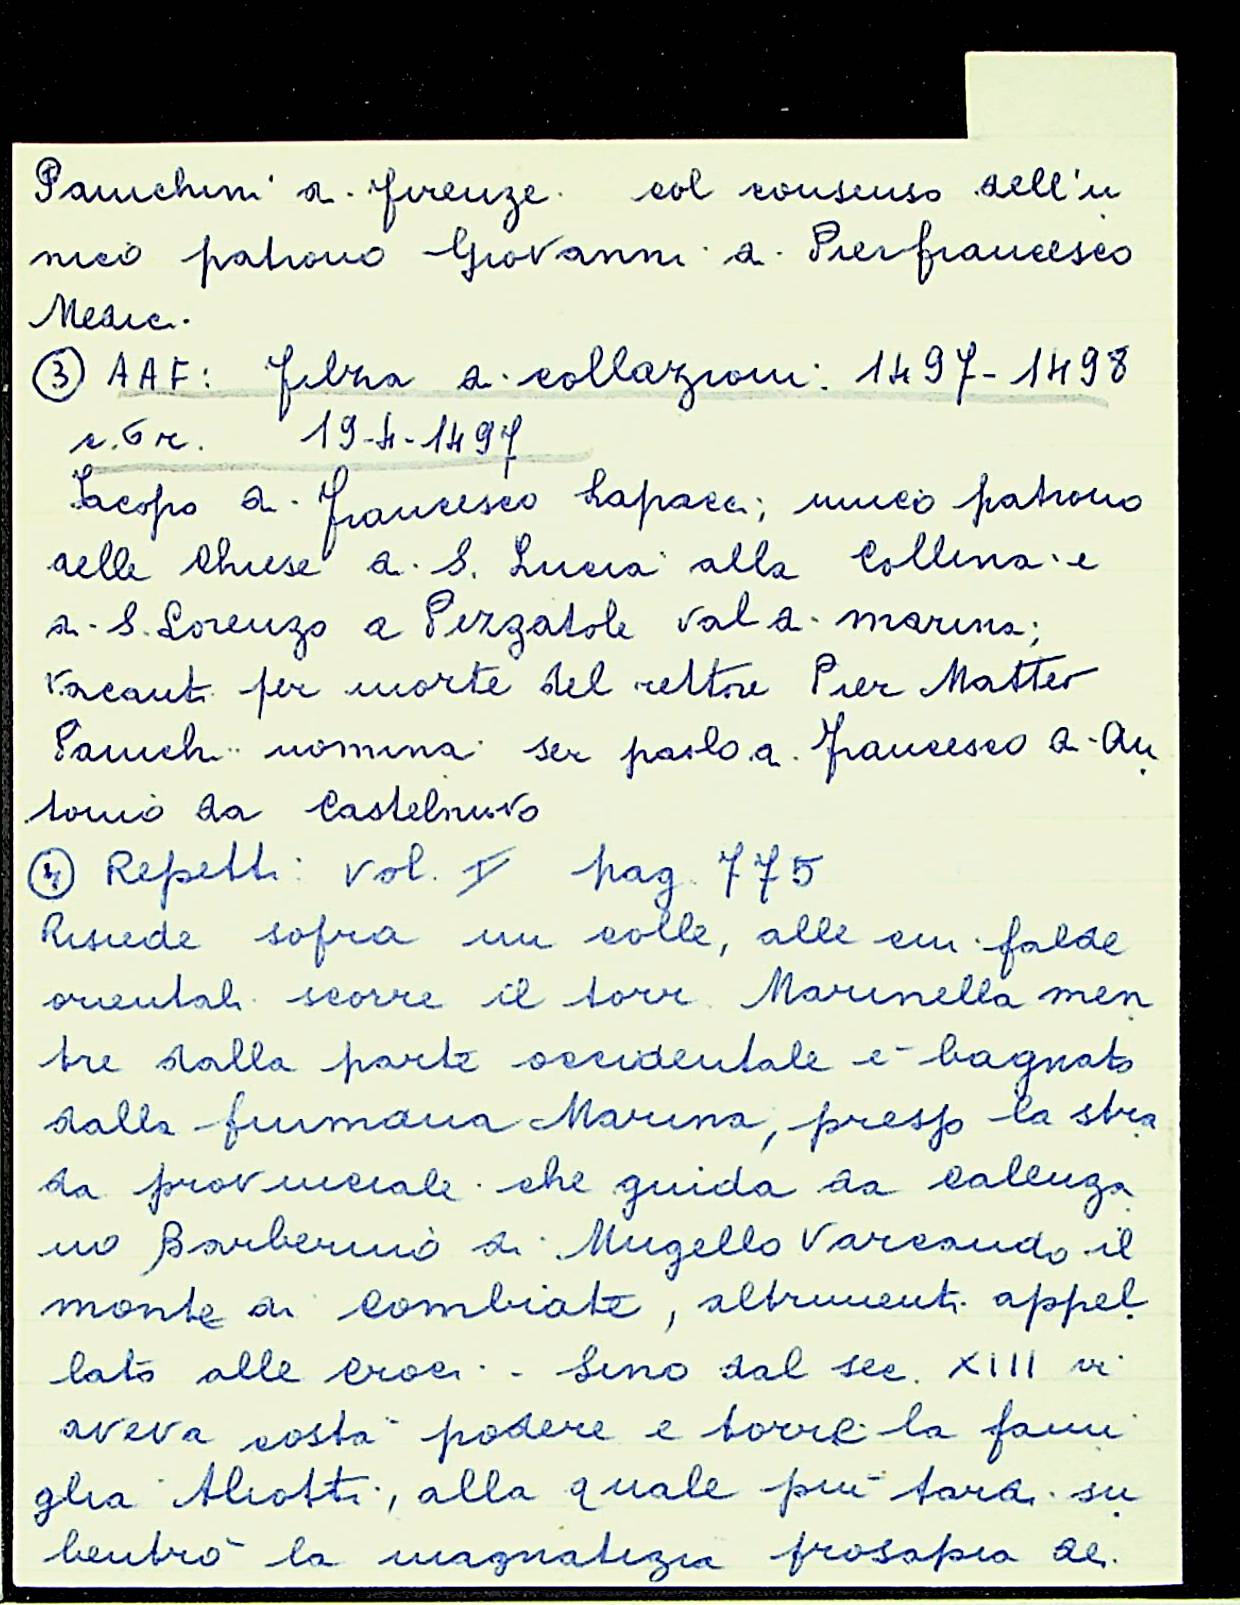 Panichini di Firenze col consenso dell'u
nico patrono Giovanni di Pierfrancesco
Medici.
③ AAF: Filza di collazioni: 1497-1498
c. 6 r. 19-4-1497
Iacopo di Francesco Lapacci; unico patrono
delle Chiese di S. Lucia alla Collina e
di S. Lorenzo a Pizzatole val di marina;
vacanti per morte del rettore Pier Matteo
Panichi nomina ser paolo di Francesco di An
tonio da Castelnuovo
④ Repetti: vol. V pag. 775
Risiede sopra un colle, alle cui falde
orientali scorre il torr. Marinella men
tre dalla parte occidentale è bagnato
dalla fiumana Marina, presso la stra
da provinciale che guida da Calenza
no Barberino di Mugello varcando il
monte di Combiate, altrimenti appel
lato alle Croci - Sino dal sec. XIII vi
aveva costà podere e torre la fami
glia Aliotti, alla quale più tardi su
bentrò la magnatizia prosapia dei